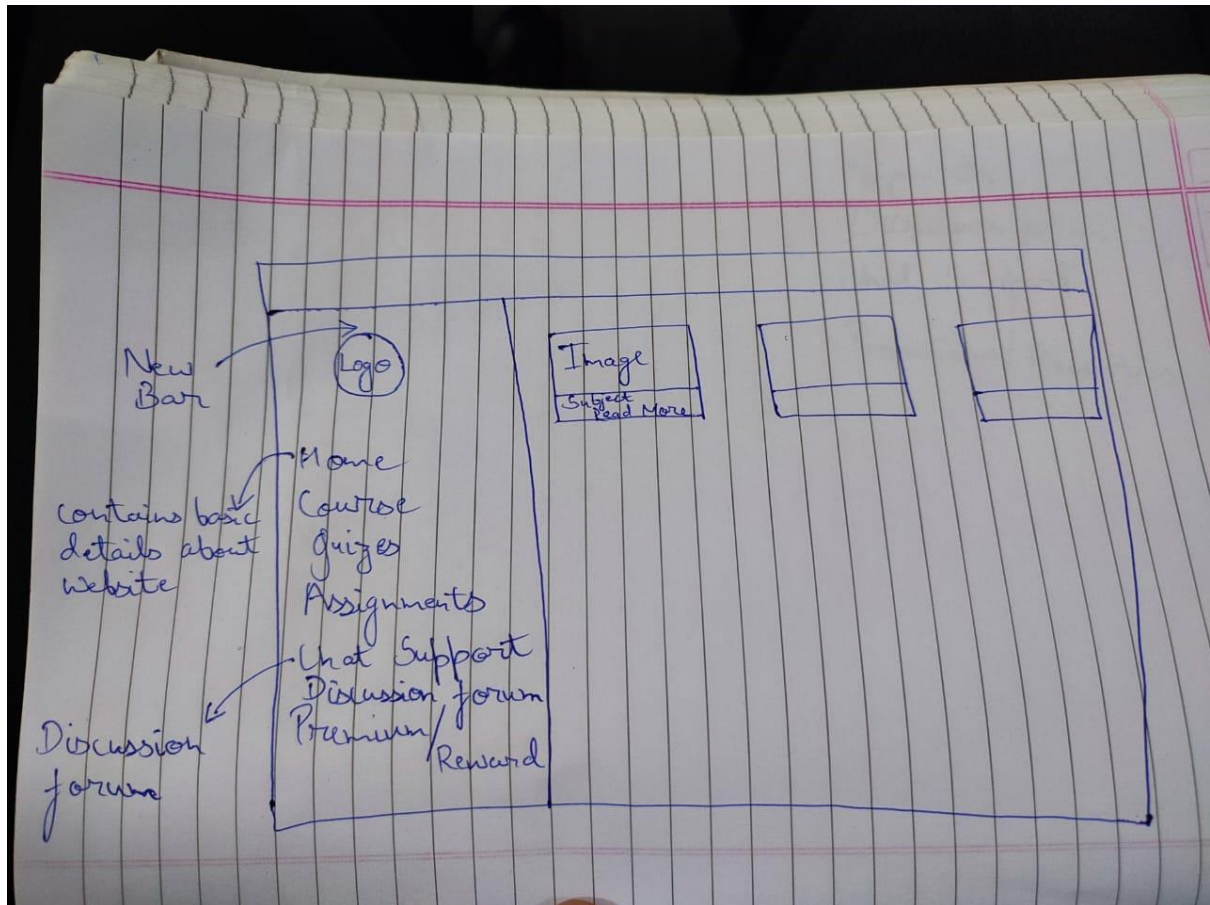 New
Bar
Logo
Image
Subject
Read More
Home
contains basic
details about
website
Course
Quizes
Assignments
Chat Support
Discussion forum
Premium/
Reward
Discussion
forum